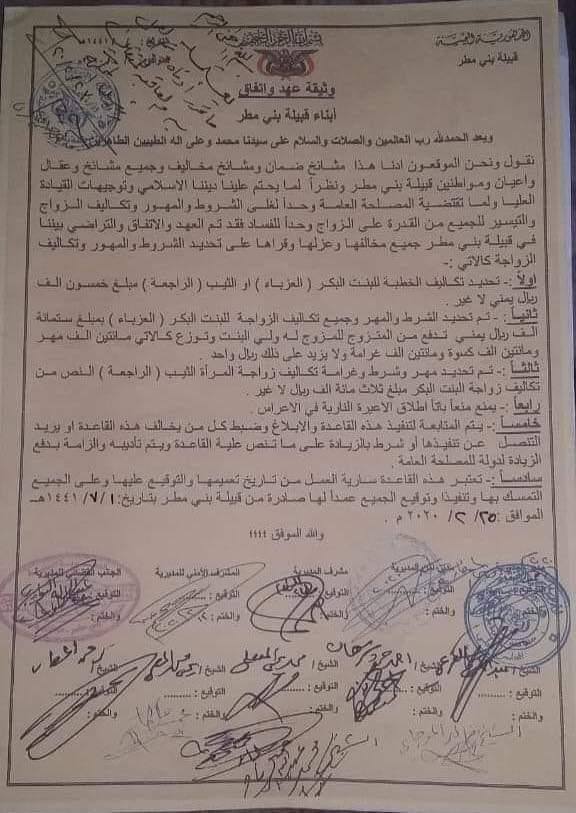 الجمهورية اليمنية
قبيلة بني مطر
بسم الله الرحمن الرحيم
وثيقة عهد واتفاق
أبناء قبيلة بني مطر
وبعد الحمدلله رب العالمين والصلات والسلام على سيدنا محمد وعلى اله الطيبين الطاهرين
نقول ونحن الموقعون ادنا هذا مشائخ ضمان ومشائخ مخاليف وجميع مشائخ وعقال
واعيان ومواطنين قبيلة بني مطر ونظراً لما يحتم علينا ديننا الاسلامي وتوجيهات القيادة
العليا ولما تقتضية المصلحة العامة وحداً لغلى الشروط والمهور وتكاليف الزواج
والتيسير للجميع من القدرة على الزواج وحداً للفساد فقد تم العهد والاتفاق والتراضي بيننا
في قبيلة بني مطر جميع مخالفها وعزلها وقراها على تحديد الشروط والمهور وتكاليف
الزواجة كالاتي :-
اولاً :- تحديد تكاليف الخطبة للبنت البكر ( العزباء ) او الثيب ( الراجعة ) مبلغ خمسون الف
ريال يمني لا غير .
ثانياً :- تم تحديد الشرط والمهر وجميع تكاليف الزواجة للبنت البكر ( العزباء ) بمبلغ ستمائة
الف ريال يمني تدفع من المتزوج للمزوج له ولي البنت وتوزع كالاتي مائتين الف مهر
ومائتين الف كسوة ومائتين الف غرامة ولا يزيد على ذلك ريال واحد .
ثالثاً :- تم تحديد مهر وشرط وغرامة تكاليف زواجة المرأة الثيب ( الراجعة ) النص من
تكاليف زواجة البنت البكر مبلغ ثلاث مائة الف ريال لا غير .
رابعاً :- يمنع منعاً باتاً اطلاق الاعيرة النارية في الاعراس .
خامساً :- يتم المتابعة لتنفيذ هذه القاعدة والابلاغ وضبط كل من يخالف هذه القاعدة او يريد
التنصل عن تنفيذها أو شرط بالزيادة على ما تنص علية القاعدة ويتم تأديبه والزامة بدفع
الزيادة لدولة للمصلحة العامة .
سادساً :- تعتبر هذه القاعدة سارية العمل من تاريخ تعميمها والتوقيع عليها وعلى الجميع
التمسك بها وتنفيذا وتوقيع الجميع عمداً لها صادرة من قبيلة بني مطر بتاريخ: ١ /٧ /١٤٤١هـ
الموافق : ٢٥ /٢ /٢٠٢٠ م .
والله الموفق ،،،،
مشرف المديرية المشرف الأمني للمديرية الجانب القضائي للمديرية
التوقيع : التوقيع : التوقيع :
والختم : والختم : والختم :
الشيخ / الشيخ / الشيخ / الشيخ / الشيخ /
التوقيع : التوقيع : التوقيع : التوقيع : التوقيع :
والختم : والختم : والختم : والختم : والختم :